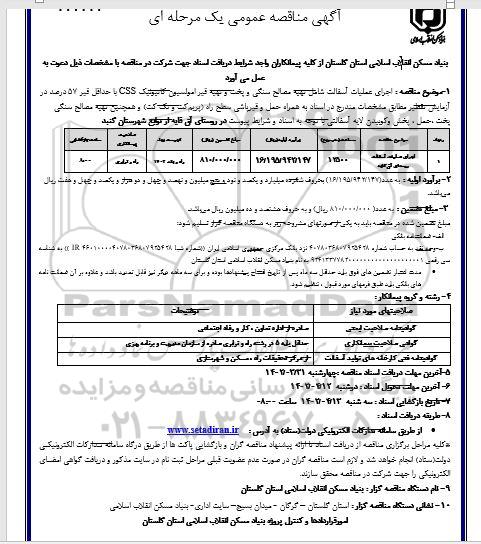 آگهی مناقصه عمومی یک مرحله ای
بنیاد مسکن انقلاب اسلامی استان گلستان از کلیه پیمانکاران واجد شرایط دریافت اسناد جهت شرکت در مناقصه با مشخصات ذیل دعوت به
عمل می آورد
۱-موضوع مناقصه : اجرای عملیات آسفالت شامل تهیه مصالح سنگی و پخت و تهیه قیر امولسیون کاتیونیک CSS با حداقل قیر ۵۷ درصد در
آزمایش تقطیر مطابق مشخصات مندرج در اسناد به همراه حمل و قیرپاشی سطح راه (پریمکت و تک کت) و همچنین تهیه مصالح سنگی
پخت ،حمل ، پخش وکوبیدن لایه آسفالتی با توجه به اسناد و شرایط پیوست در روستای آق قایه از توابع شهرستان گنبد
۲-برآورد اولیه : به عدد(۱۶/۱۹۵/۹۴۲/۱۴۷) بحروف شانزده میلیارد و یکصد و نود و پنج میلیون و نهصد و چهل و دو هزار و یکصد و چهل و هفت ریال
میباشد.
۳-مبلغ تضمین : به عدد( ۸۱۰/۰۰۰/۰۰۰ ریال) و به حروف هشتصد و ده میلیون ریال میباشد.
مبلغ تضمین شده در مناقصه باید به یکی از صورتهای مشروحه زیر به دستگاه مناقصه گزار تسلیم شود:
الف: ضمانتنامه بانکی
سی رقمی به نام بنیاد مسکن انقلاب اسلامی استان گلستان
مدت اعتبار تضمین های فوق باید حداقل سه ماه پس از تاریخ افتتاح پیشنهادها بوده و برای سه ماهه دیگر نیز قابل تمدید باشد و علاوه بر آن ضمانت نامه
های بانکی باید طبق فرمهای مورد قبول ، تنظیم شود.
۴- رشته و گروه پیمانکار :
صلاحیتهای مورد نیاز توضیحات
گواهینامه صلاحیت ایمنی صادره از اداره تعاون ، کار و رفاه اجتماعی
گواهی صلاحیت پیمانکاری حداقل پایه ۵ در رشته راه و ترابری صادره از سازمان مدیریت و برنامه ریزی
گواهینامه فنی کارخانه های تولید آسفالت از مرکز تحقیقات راه ، مسکن و شهرسازی
۵-آخرین مهلت دریافت اسناد مناقصه :چهارشنبه
۶- آخرین مهلت تحویل اسناد : دوشنبه
۷- تاریخ بازگشایی اسناد : سه شنبه ساعت ۸:۰۰
۸-طریقه دریافت اسناد :
از طریق سامانه تدارکات الکترونیکی دولت(ستاد) به آدرس : www.setadiran.ir
*کلیه مراحل برگزاری مناقصه از دریافت اسناد تا ارائه پیشنهاد مناقصه گران و بازگشایی پاکت ها از طریق درگاه سامانه تدارکات الکترونیکی
دولت(ستاد) انجام خواهد شد و لازم است مناقصه گران در صورت عدم عضویت قبلی مراحل ثبت نام در سایت مذکور و دریافت گواهی امضای
الکترونیکی را جهت شرکت در مناقصه محقق سازند.
۹- نام دستگاه مناقصه گزار : بنیاد مسکن انقلاب اسلامی استان گلستان
۱۰- نشانی دستگاه مناقصه گزار : استان گلستان – گرگان - میدان بسیج– سایت اداری- بنیاد مسکن انقلاب اسلامی
امورقراردادها و کنترل پروژه بنیاد مسکن انقلاب اسلامی استان گلستان